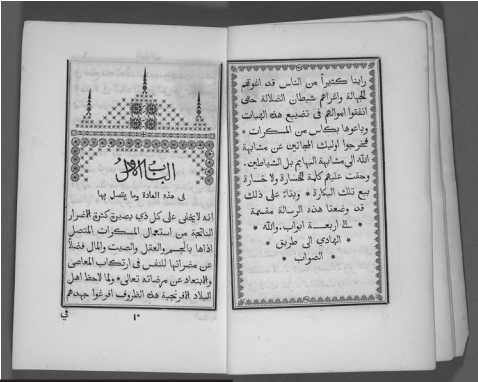 راينا كثيراً من الناس قد اغوتهم
الجهالة واغراهم شيطان الضلالة حتى
انفقوا اموالهم في تضييع هذه الهبات
وباعوها بكاس من المسكرات *
فخرجوا اوليك المجانين عن مشابهة
الله الى مشابهة البهايم بل الشياطين.
وحقت عليهم كلمة الخسارة ولا خسارة
بيع تلك البكارة * وبناءً على ذلك
قد وضعنا هذه الرسالة مقسمة
* الى اربعة ابواب. والله *
* الهادي الى طريق *
* الصواب *
الباب الاول
في هذه العادة وما يتصل بها
انه لا يخفى على كل ذي بصيرة كثرة الاضرار
الناتجة من استعمال المسكرات المتصل
اذاها بالجسم والعقل والصيت والمال فضلاً
عن مضراتها للنفس في ارتكاب المعاصي
والابتعاد عن مرضاته تعالى * ولما لاحظ اهل
البلاد الافرنجية هذه الظروف افرغوا جهدهم
في